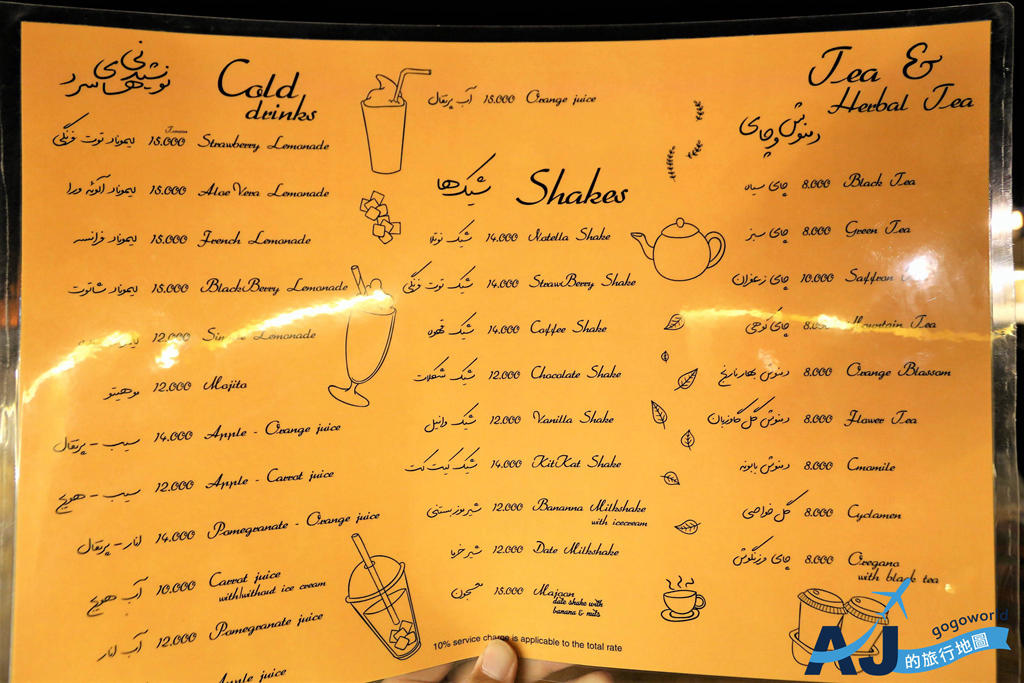 نوشیدنی
های سرد
Cold
drinks
Toman
لیموناد توت فرنگی 15.000 Strawberry Lemonade
لیموناد آلوئه ورا 15.000 Aloe Vera Lemonade
لیموناد فرانسه 15.000 French Lemonade
لیموناد شاتوت 15.000 BlackBerry Lemonade
12.000 Simple Lemonade
موهیتو 12.000 Mojito
سیب - پرتقال 14.000 Apple - Orange juice
سیب - هویج 12.000 Apple - Carrot juice
انار - پرتقال 14.000 Pomegranate - Orange juice
آب هویج 10.000 Carrot juice
with/without ice cream
آب انار 12.000 Pomegranate juice
Apple juice
آب پرتقال 15.000 Orange juice
شیک‌ها Shakes
شیک نوتلا 14.000 Nutella Shake
شیک توت فرنگی 14.000 StrawBerry Shake
شیک قهوه 14.000 Coffee Shake
شیک شکلات 12.000 Chocolate Shake
شیک وانیل 12.000 Vanilla Shake
شیک کیت کت 14.000 KitKat Shake
شیر موز بستنی 12.000 Bananna Milkshake
with icecream
شیر خرما 12.000 Date Milkshake
معجون 15.000 Majoon
date shake with
banana & nuts
10% service charge is applicable to the total rate
Tea &
Herbal Tea
دمنوش
و چای
چای سیاه 8.000 Black Tea
چای سبز 8.000 Green Tea
چای زعفران 10.000 Saffron
چای کوهی 8.000 Mountain Tea
دمنوش بهارنارنج 8.000 Orange Blossom
دمنوش گل گاوزبان 8.000 Flower Tea
دمنوش بابونه 8.000 Cmomile
گل خواصی 8.000 Cyclamen
چای مرزنگوش 8.000 Oregano
with black tea
AJ
gogoworld
的旅行地圖